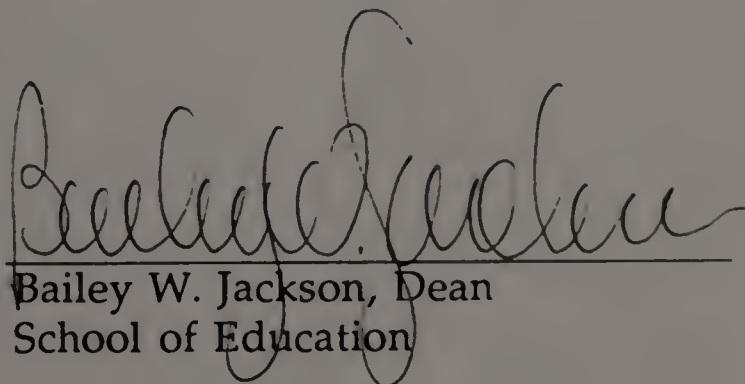 Bailey W. Jackson
Bailey W. Jackson, Dean
School of Education